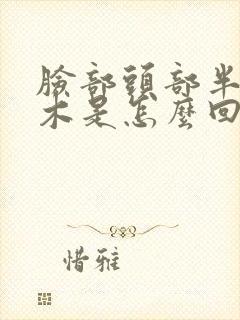 臉部頭部半
木是怎麼回
惜雅